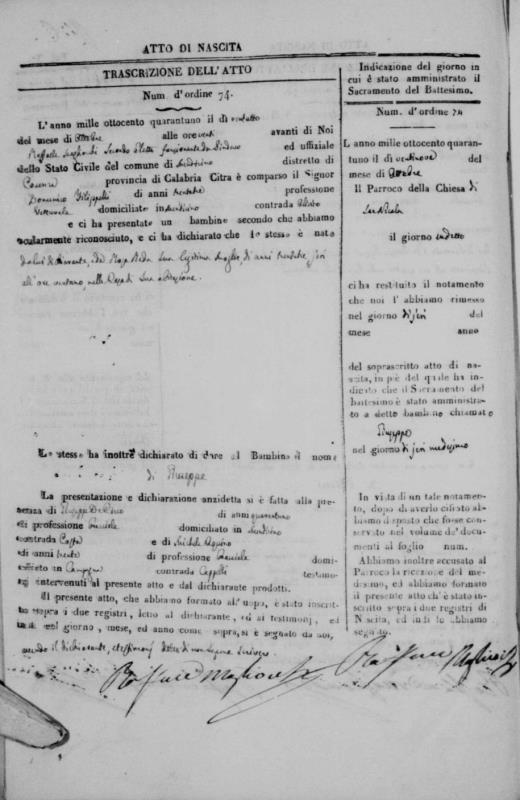 ATTO DI NASCITA
TRASCRIZIONE DELL'ATTO
Num. d'ordine 74.
L'anno mille ottocento quarantuno il dì ventotto
del mese di Ottobre alle ore venti avanti di Noi
Raffaele Secondo Eletto funzionante da Sindaco ed uffiziale
dello Stato Civile del comune di distretto di
Cosenza provincia di Calabria Citra è comparso il Signor
Domenico Filippelli di anni trentotto professione
domiciliato in contrada
e ci ha presentato un bambino secondo che abbiamo
ocularmente riconosciuto, e ci ha dichiarato che lo stesso è nato
da lui dichiarante, e da Rosa sua legittima moglie, di anni trentotto, jeri
all'ore ventuno nella Casa di sua abitazione.
Lo stesso ha inoltre dichiarato di dare al Bambino il nome
di Giuseppe
La presentazione e dichiarazione anzidetta si è fatta alla pre-
senza di Giuseppe di anni quarantuno
di professione domiciliato in
contrada e di Michele Aquino
di anni trenta di professione domi-
ciliato in contrada Cappelli testimo-
nj intervenuti al presente atto e dal dichiarante prodotti.
Il presente atto, che abbiamo formato all'uopo, è stato inscrit-
to sopra i due registri, letto al dichiarante, ed ai testimonj, ed
indi nel giorno, mese, ed anno come sopra, si è segnato da noi,
avendo il dichiarante, e testimonj detto di non sapere scrivere.
Indicazione del giorno in
cui è stato amministrato il
Sacramento del Battesimo.
Num. d'ordine 74
L'anno mille ottocento quaran-
tuno il dì ventinove del
mese di Ottobre
Il Parroco della Chiesa di
San Nicola
il giorno indetto
ci ha restituito il notamento
che noi l'abbiamo rimesso
nel giorno di jeri del
mese anno
del soprascritto atto di na-
scita, in piè del quale ha in-
dicato che il Sacramento del
battesimo è stato amministra-
to a detto bambino chiamato
Giuseppe
nel giorno di jeri medesimo
In vista di un tale notamen-
to, dopo di averlo cifrato ab-
biamo disposto che fosse con-
servato nel volume de' docu-
menti al foglio num.
Abbiamo inoltre accusato al
Parroco la ricezione del me-
desimo, ed abbiamo formato
il presente atto ch'è stato in-
scritto sopra i due registri di
Nascita, ed indi lo abbiamo
segnato.
Raffaele
Raffaele